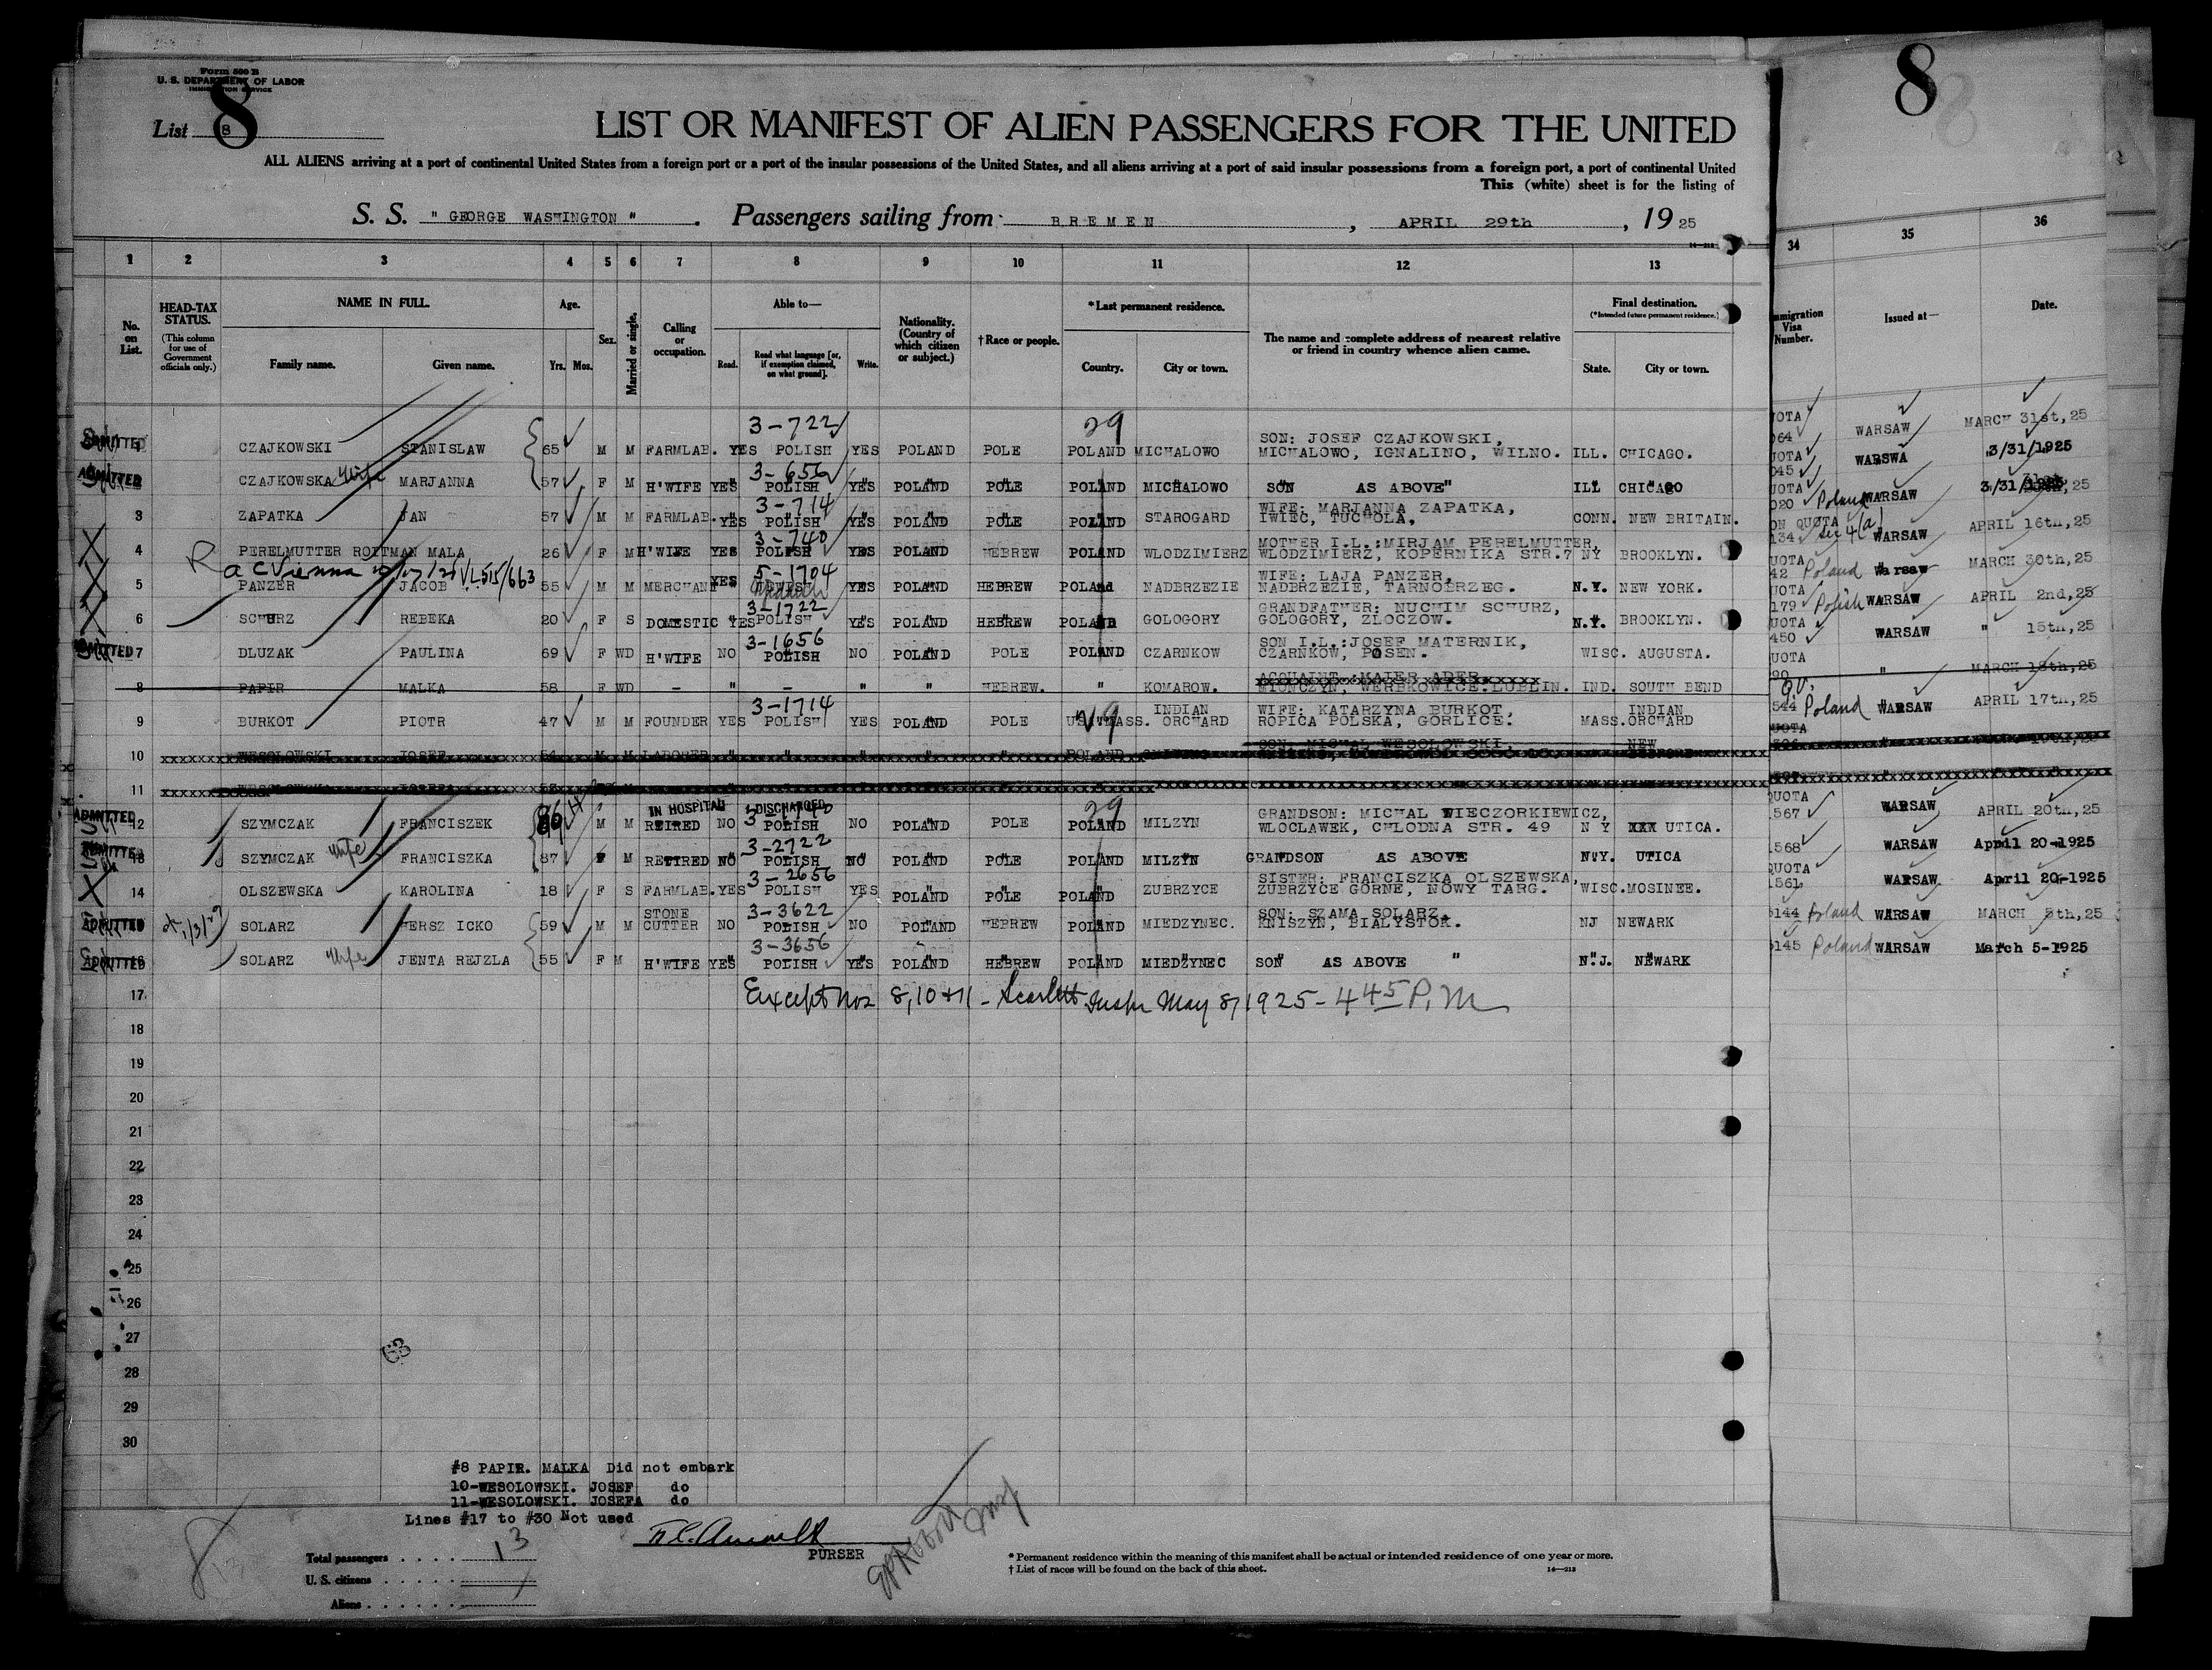 Form 500 B
U. S. DEPARTMENT OF LABOR
IMMIGRATION SERVICE
8
List 8
LIST OR MANIFEST OF ALIEN PASSENGERS FOR THE UNITED
ALL ALIENS arriving at a port of continental United States from a foreign port or a port of the insular possessions of the United States, and all aliens arriving at a port of said insular possessions from a foreign port, a port of continental United
This (white) sheet is for the listing of
S. S. " GEORGE WASHINGTON " . Passengers sailing from BREMEN , APRIL 29th , 19 25
1 2 3 4 5 6 7 8 9 10 11 12 13
No. on List.
HEAD-TAX STATUS.
(This column for use of Government officials only.)
NAME IN FULL.
Family name. Given name.
Age.
Yrs. Mos.
Sex.
Married or single.
Calling or occupation.
Able to—
Read. Read what language [or, if exemption claimed, on what ground]. Write.
Nationality. (Country of which citizen or subject.)
† Race or people.
* Last permanent residence.
Country. City or town.
The name and complete address of nearest relative or friend in country whence alien came.
Final destination.
(* Intended future permanent residence.)
State. City or town.
3-722 29
CZAJKOWSKI STANISLAW 65 M M FARMLAB. YES POLISH YES POLAND POLE POLAND MICHALOWO SON: JOSEF CZAJKOWSKI, MICHALOWO, IGNALINO, WILNO. ILL. CHICAGO.
3-656
ADMITTED CZAJKOWSKA wife MARJANNA 57 F M H'WIFE YES POLISH YES POLAND POLE POLAND MICHALOWO SON AS ABOVE" ILL CHICAGO
3-714
3 ZAPATKA JAN 57 M M FARMLAB. YES POLISH YES POLAND POLE POLAND STAROGARD WIFE: MARJANNA ZAPATKA, IWIEC, TUCHOLA, CONN. NEW BRITAIN.
3-740
4 PERELMUTTER ROITMAN MALA 26 F M H'WIFE YES POLISH YES POLAND HEBREW POLAND WLODZIMIERZ MOTHER I.L.:MIRJAM PERELMUTTER, WLODZIMIERZ, KOPERNIKA STR.7 NY BROOKLYN.
5-1704
5 PANZER JACOB 55 M M MERCHANT YES YES POLAND HEBREW POLAND NADBRZEZIE WIFE: LAJA PANZER, NADBRZEZIE, TARNOBRZEG. N.Y. NEW YORK.
3-1722
6 SCHURZ REBEKA 20 F S DOMESTIC YES POLISH YES POLAND HEBREW POLAND GOLOGORY GRANDFATHER: NUCHIM SCHURZ, GOLOGORY, ZLOCZOW. N.Y. BROOKLYN.
3-1656
7 DLUZAK PAULINA 69 F WD H'WIFE NO POLISH NO POLAND POLE POLAND CZARNKOW SON I.L.:JOSEF MATERNIK, CZARNKOW, POSEN. WISC. AUGUSTA.
8 PAPIR MALKA 58 F WD - " - " " HEBREW. " KOMAROW. ACQUAINT.:MAJER ADER, MIONCZYN, WERBKOWICE.LUBLIN. IND. SOUTH BEND
3-1714
9 BURKOT PIOTR 47 M M FOUNDER YES POLISH YES POLAND POLE MASS. INDIAN ORCHARD WIFE: KATARZYNA BURKOT, ROPICA POLSKA, GORLICE. MASS. INDIAN ORCHARD
10 WESOLOWSKI JOSEF 54 M M LABORER " " " " " POLAND SON: MICHAL WESOLOWSKI, NEW
11
IN HOSPITAL DISCHARGED 29
ADMITTED 12 SZYMCZAK FRANCISZEK 86 M M RETIRED NO POLISH NO POLAND POLE POLAND MILZYN GRANDSON: MICHAL WIECZORKIEWICZ, WLOCLAWEK, CHLODNA STR. 49 N Y UTICA.
3-2722
13 SZYMCZAK wife FRANCISZKA 87 F M RETIRED NO POLISH NO POLAND POLE POLAND MILZYN GRANDSON AS ABOVE N.Y. UTICA
3-2656
14 OLSZEWSKA KAROLINA 18 F S FARMLAB. YES POLISH YES POLAND POLE POLAND ZUBRZYCE SISTER: FRANCISZKA OLSZEWSKA, ZUBRZYCE GORNE, NOWY TARG. WISC. MOSINEE.
3-3622
ADMITTED SOLARZ HERSZ ICKO 59 M M STONE CUTTER NO POLISH NO POLAND HEBREW POLAND MIEDZYNEC. SON: SZAMA SOLARZ, KNISZYN, BIALYSTOK. NJ NEWARK
3-3656
ADMITTED 16 SOLARZ wife JENTA REJZLA 55 F M H'WIFE YES POLISH YES POLAND HEBREW POLAND MIEDZYNEC SON AS ABOVE " N.J. NEWARK
17 Except nos 8, 10 + 11 - Scarlett Inspr May 8, 1925 - 4 45 P. M
18
19
20
21
22
23
24
25
26
27
28
29
30
#8 PAPIR. MALKA Did not embark
10-WESOLOWSKI. JOSEF do
11-WESOLOWSKI. JOSEFA do
Lines #17 to #30 Not used
PURSER
Total passengers . . . . 13
U. S. citizens . . . . .
Aliens . . . . . .
* Permanent residence within the meaning of this manifest shall be actual or intended residence of one year or more.
† List of races will be found on the back of this sheet.
14—213
8
34 35 36
Immigration Visa Number. Issued at— Date.
WARSAW MARCH 31st,25
WARSWA 3/31/1925
Poland WARSAW 3/31/ ,25
Sec 4(a) WARSAW APRIL 16th,25
Poland Warsaw MARCH 30th,25
179 Polish WARSAW APRIL 2nd,25
450 WARSAW " 15th,25
" MARCH 18th,25
544 Poland WARSAW APRIL 17th,25
QUOTA
567 WARSAW APRIL 20th,25
568 WARSAW April 20-1925
QUOTA
561 WARSAW April 20-1925
144 Poland WARSAW MARCH 5th,25
145 Poland WARSAW March 5-1925